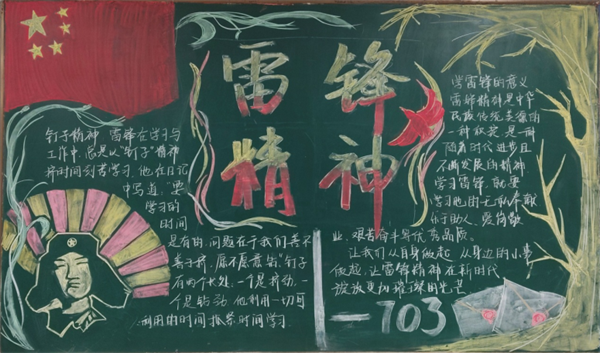 雷锋
精神
钉子精神，雷锋在学习与
工作中，总是以“钉子”精神
挤时间刻苦学习，他在日记
中写道，“要
学习的
时间
是有的，问题在于我们善不
善于挤，愿不愿意钻。钉子
有两个长处，一个是挤劲，一
个是钻劲”他利用一切可
利用的时间抓紧时间学习。
学雷锋的意义
雷锋精神是中华
民族传统美德的
一种积淀，是一种
随着时代进步且
不断发展的精神
学习雷锋，就要
学习他的无私奉献
乐于助人，爱岗敬
业，艰苦奋斗等优秀品质。
让我们从自身做起，从身边的小事
做起，让雷锋精神在新时代
绽放更加璀璨的光芒
一703